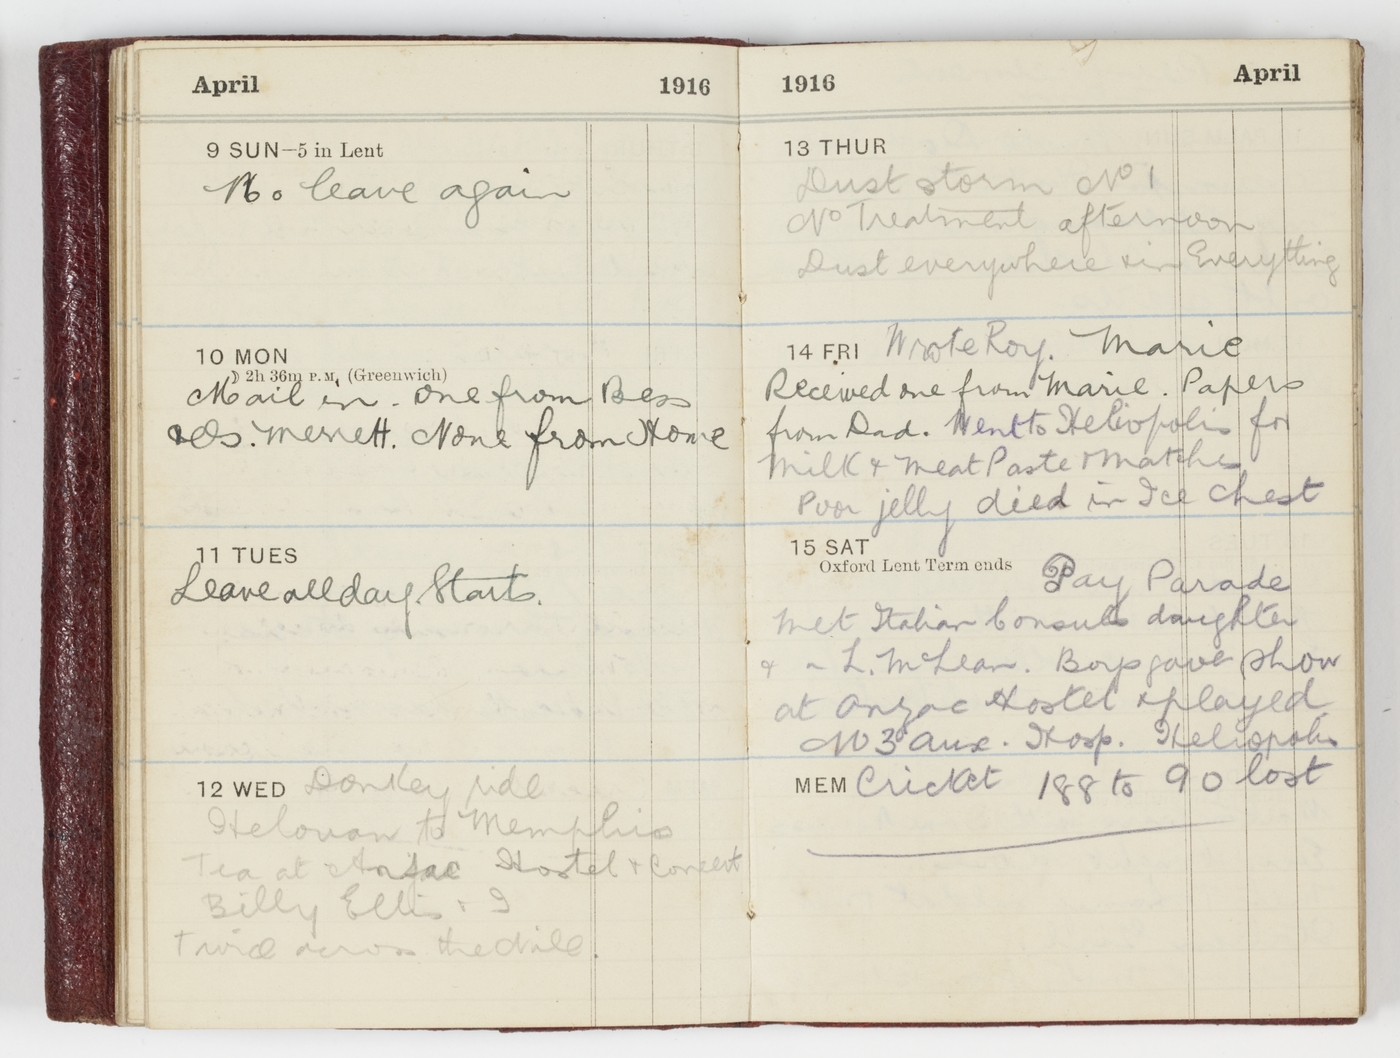 April 1916
9 SUN—5 in Lent
No leave again
10 MON
☽ 2h 36m P.M. (Greenwich)
Mail in. One from Bess
& Merrett. None from Home
11 TUES
Leave all day Starts.
12 WED Donkey ride
Helouan to Memphis
Tea at Anzac Hostel & Concert
Billy Ellis & I
Twice across the Nile.
1916 April
13 THUR
Dust storm No 1
No Treatment afternoon
Dust everywhere & in Everything
14 FRI Wrote Roy. Marie
Received one from Marie. Papers
from Dad. Went to Heliopolis for
Milk & Meat Paste & Matches
Poor jelly died in Ice Chest
15 SAT
Oxford Lent Term ends
Pay Parade
Met Italian Consuls daughter
& L. McLean. Boys gave show
at Anzac Hostel & played
No 3 Aux. Hosp. Heliopolis
MEM Cricket 188 to 90 lost